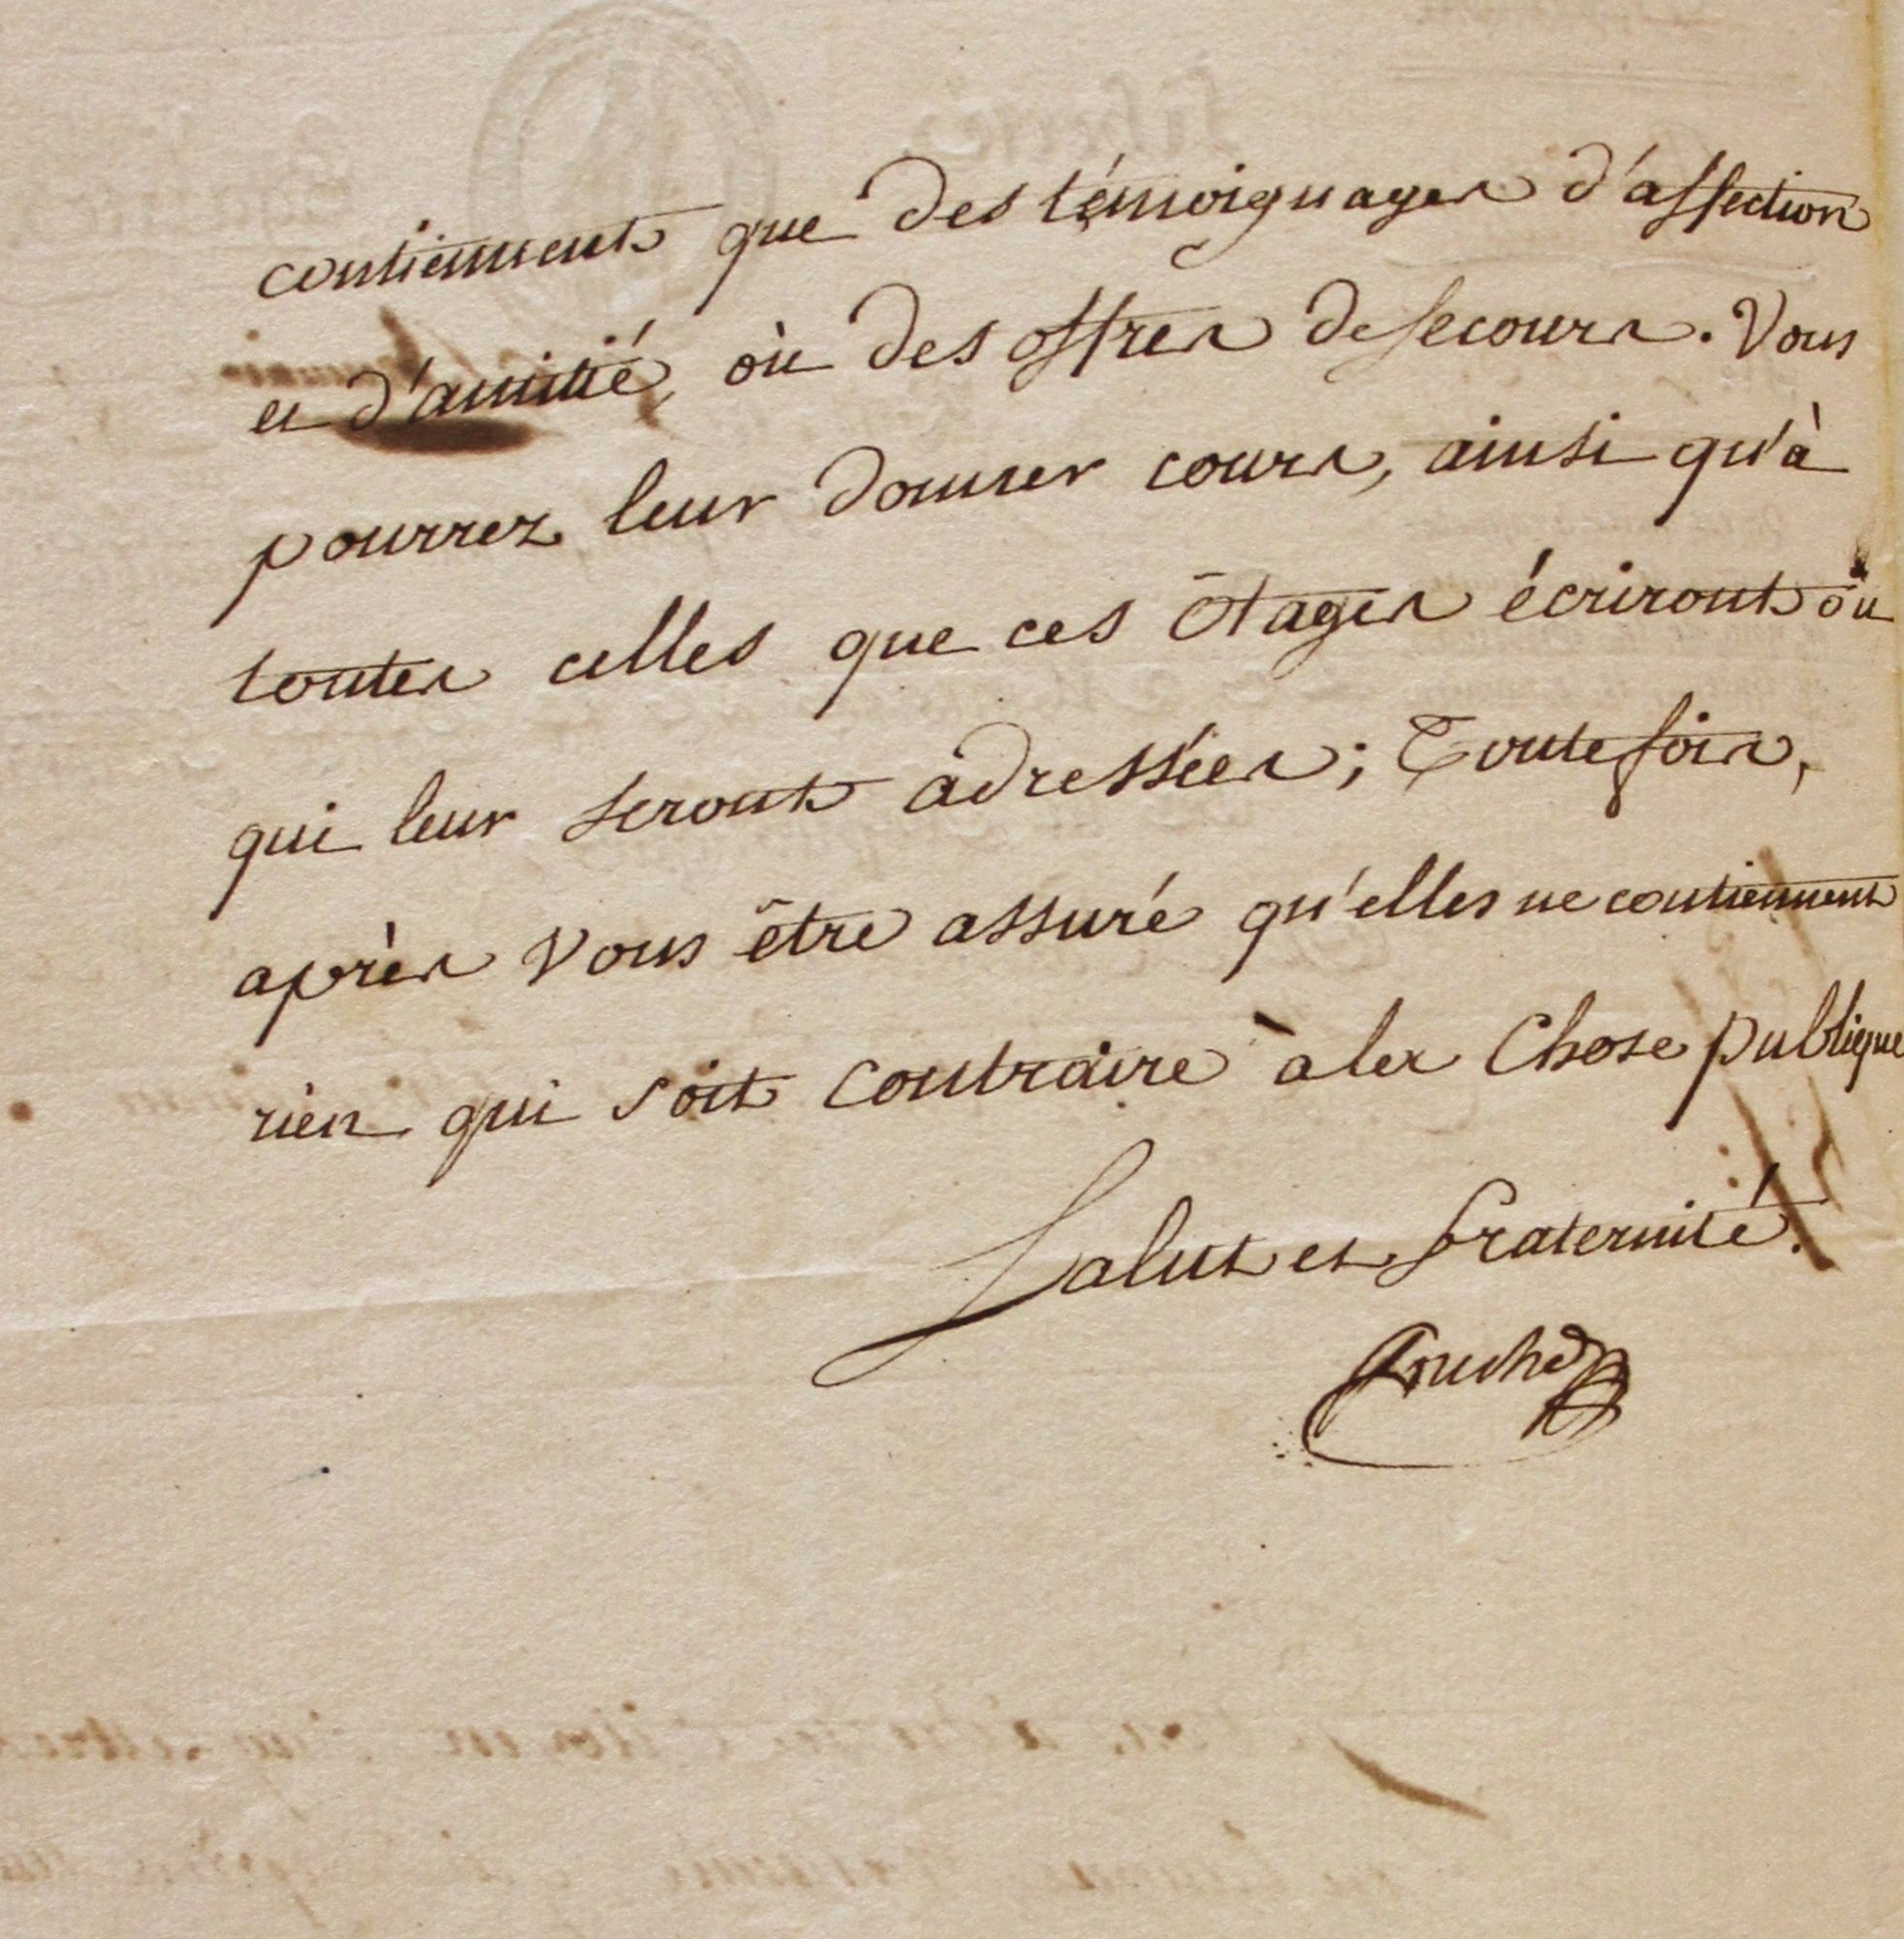 contiennent que des témoignages d'affection
et d'amitié, où des offres de secours. Vous
pourrez leur donner cours, ainsi qu'à
toutes celles que ces ôtages écriront ou
qui leur seront adressées; Toutefois,
après vous être assuré qu'elles ne contiennent
rien qui soit contraire à la Chose publique
Salut et fraternité.
Grouchy